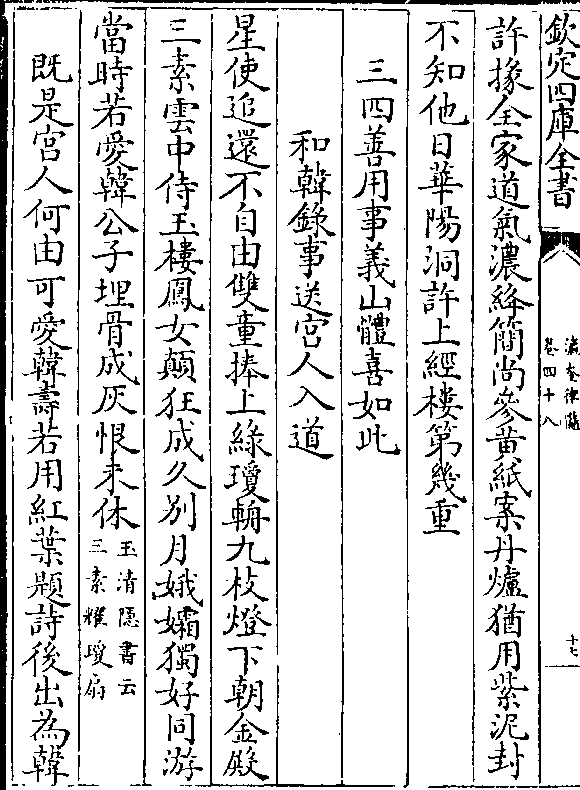 欽定四庫全書
瀛奎律髓
卷四十八
十七
許掾全家道氣濃絳簡尚參黄紙案丹爐猶用紫泥封
不知他日華陽洞許上經樓第幾重
三四善用事義山體喜如此
和韓錄事送宮人入道
星使追還不自由雙童捧上綠瓊輈九枝燈下朝金殿
三素雲中侍玉樓鳳女顛狂成久别月娥孀獨好同游
當時若愛韓公子埋骨成灰恨未休
玉清隱書云
三素耀瓊扇
既是宮人何由可愛韓壽若用紅葉題詩後出為韓